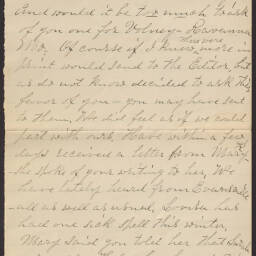 And would it be too much to ask
of you one for Volney - Ravenna
Mo. Of course if I knew more in
print would send to the Editor, but
as do not know decided to ask this
favor of you - you may have sent
to them, We did feel as if we could
part with ours, Have within a few
days received a letter from Mary
she spoke of your writing to her, We
have lately heard from
all as well as usual, Louisa has
had one sick spell this winter,
Mary said you told her that